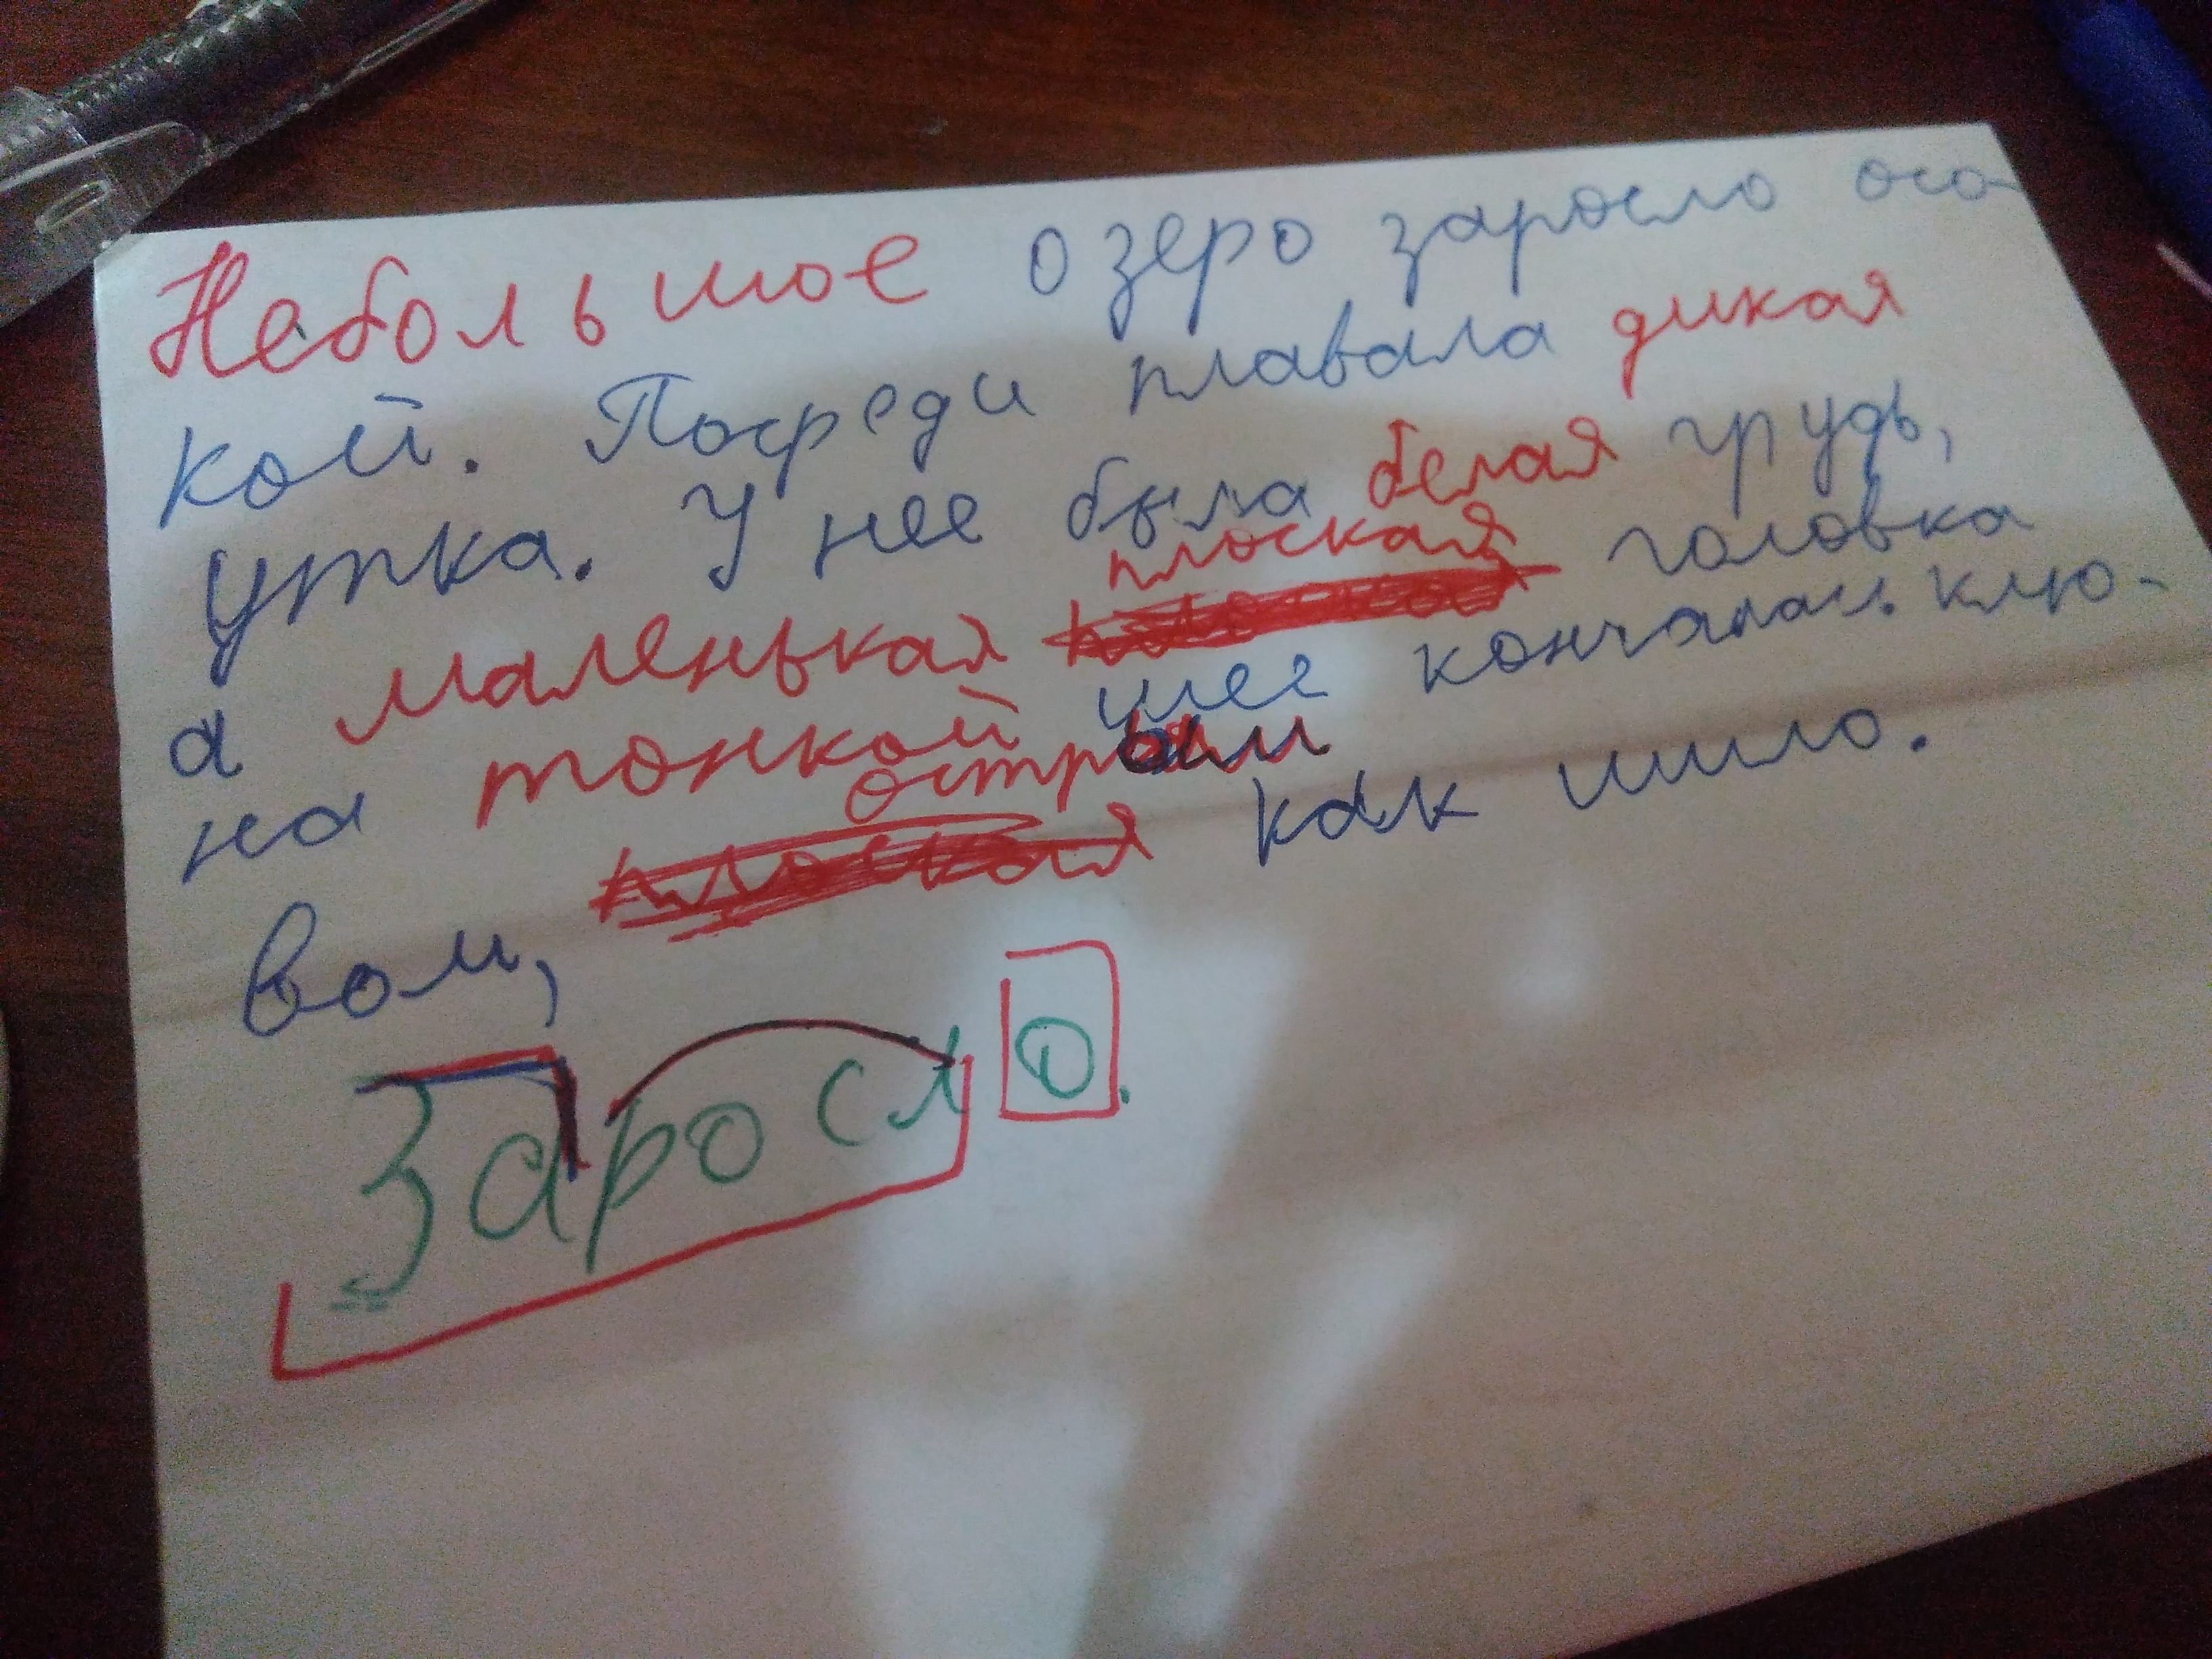 Небольшое озеро заросло осо-
кой. Посреди плавала дикая
утка. У нее была белая грудь,
а маленькая плоская головка
на тонкой шее кончалась клю-
вом, острым как шило.
Заросло.